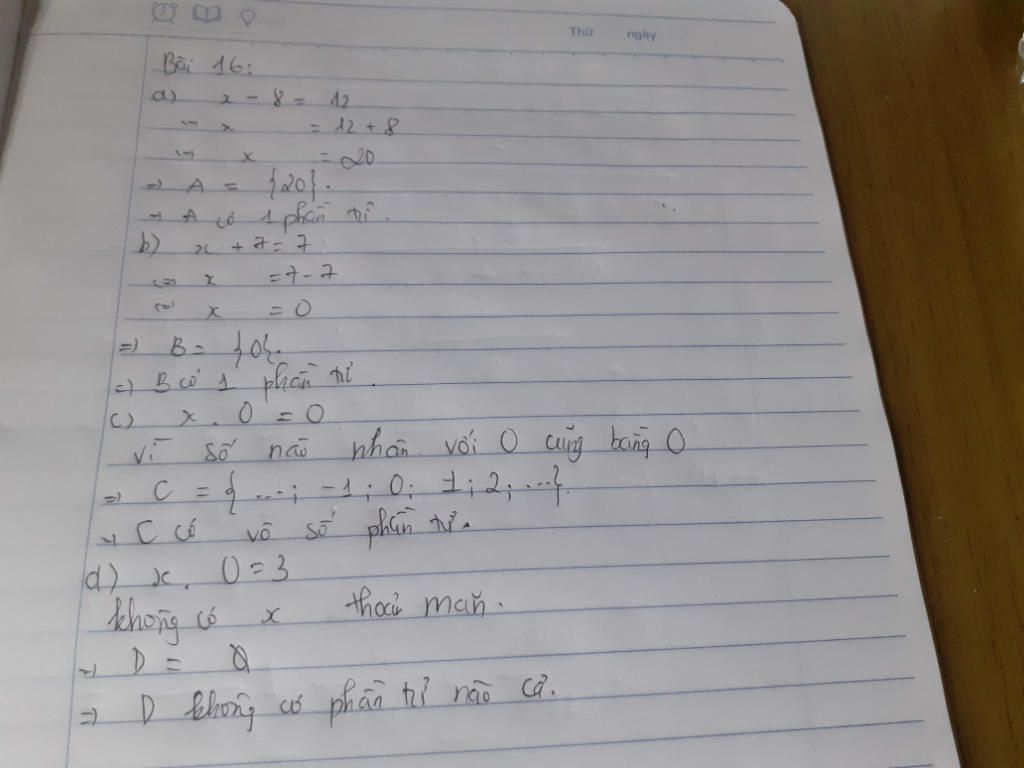 Thứ ngày
Bài 16:
a) x - 8 = 12
⇔ x = 12 + 8
⇔ x = 20
=> A = {20}.
=> A có 1 phần tử.
b) x + 7 = 7
⇔ x = 7 - 7
⇔ x = 0
=> B = {0}.
=> B có 1 phần tử.
c) x . 0 = 0
vì số nào nhân với 0 cũng bằng 0
=> C = { ...; -1 ; 0; 1 ; 2 ; ...}.
=> C có vô số phần tử.
d) x . 0 = 3
không có x thoả mãn.
=> D = ∅
=> D không có phần tử nào cả.